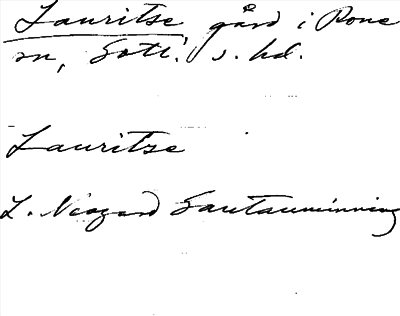 Lauritse gård i Rone
sn, Gotl. s. hd.
Lauritse
L. Nisgard Gautauminning